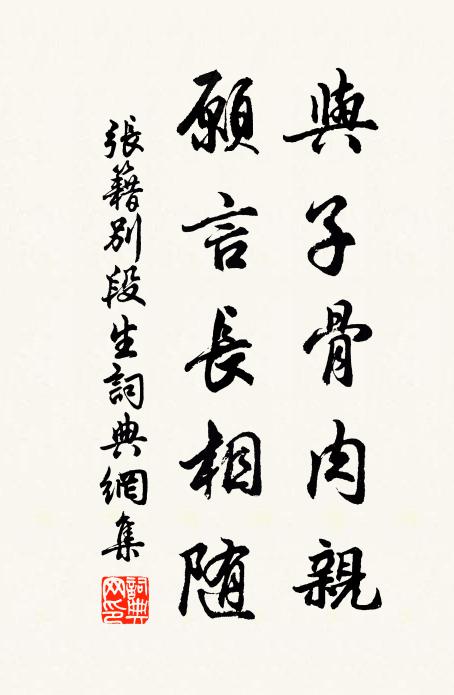 與子骨肉親
願言長相随
張籍別段生詞典網集
詞典網印